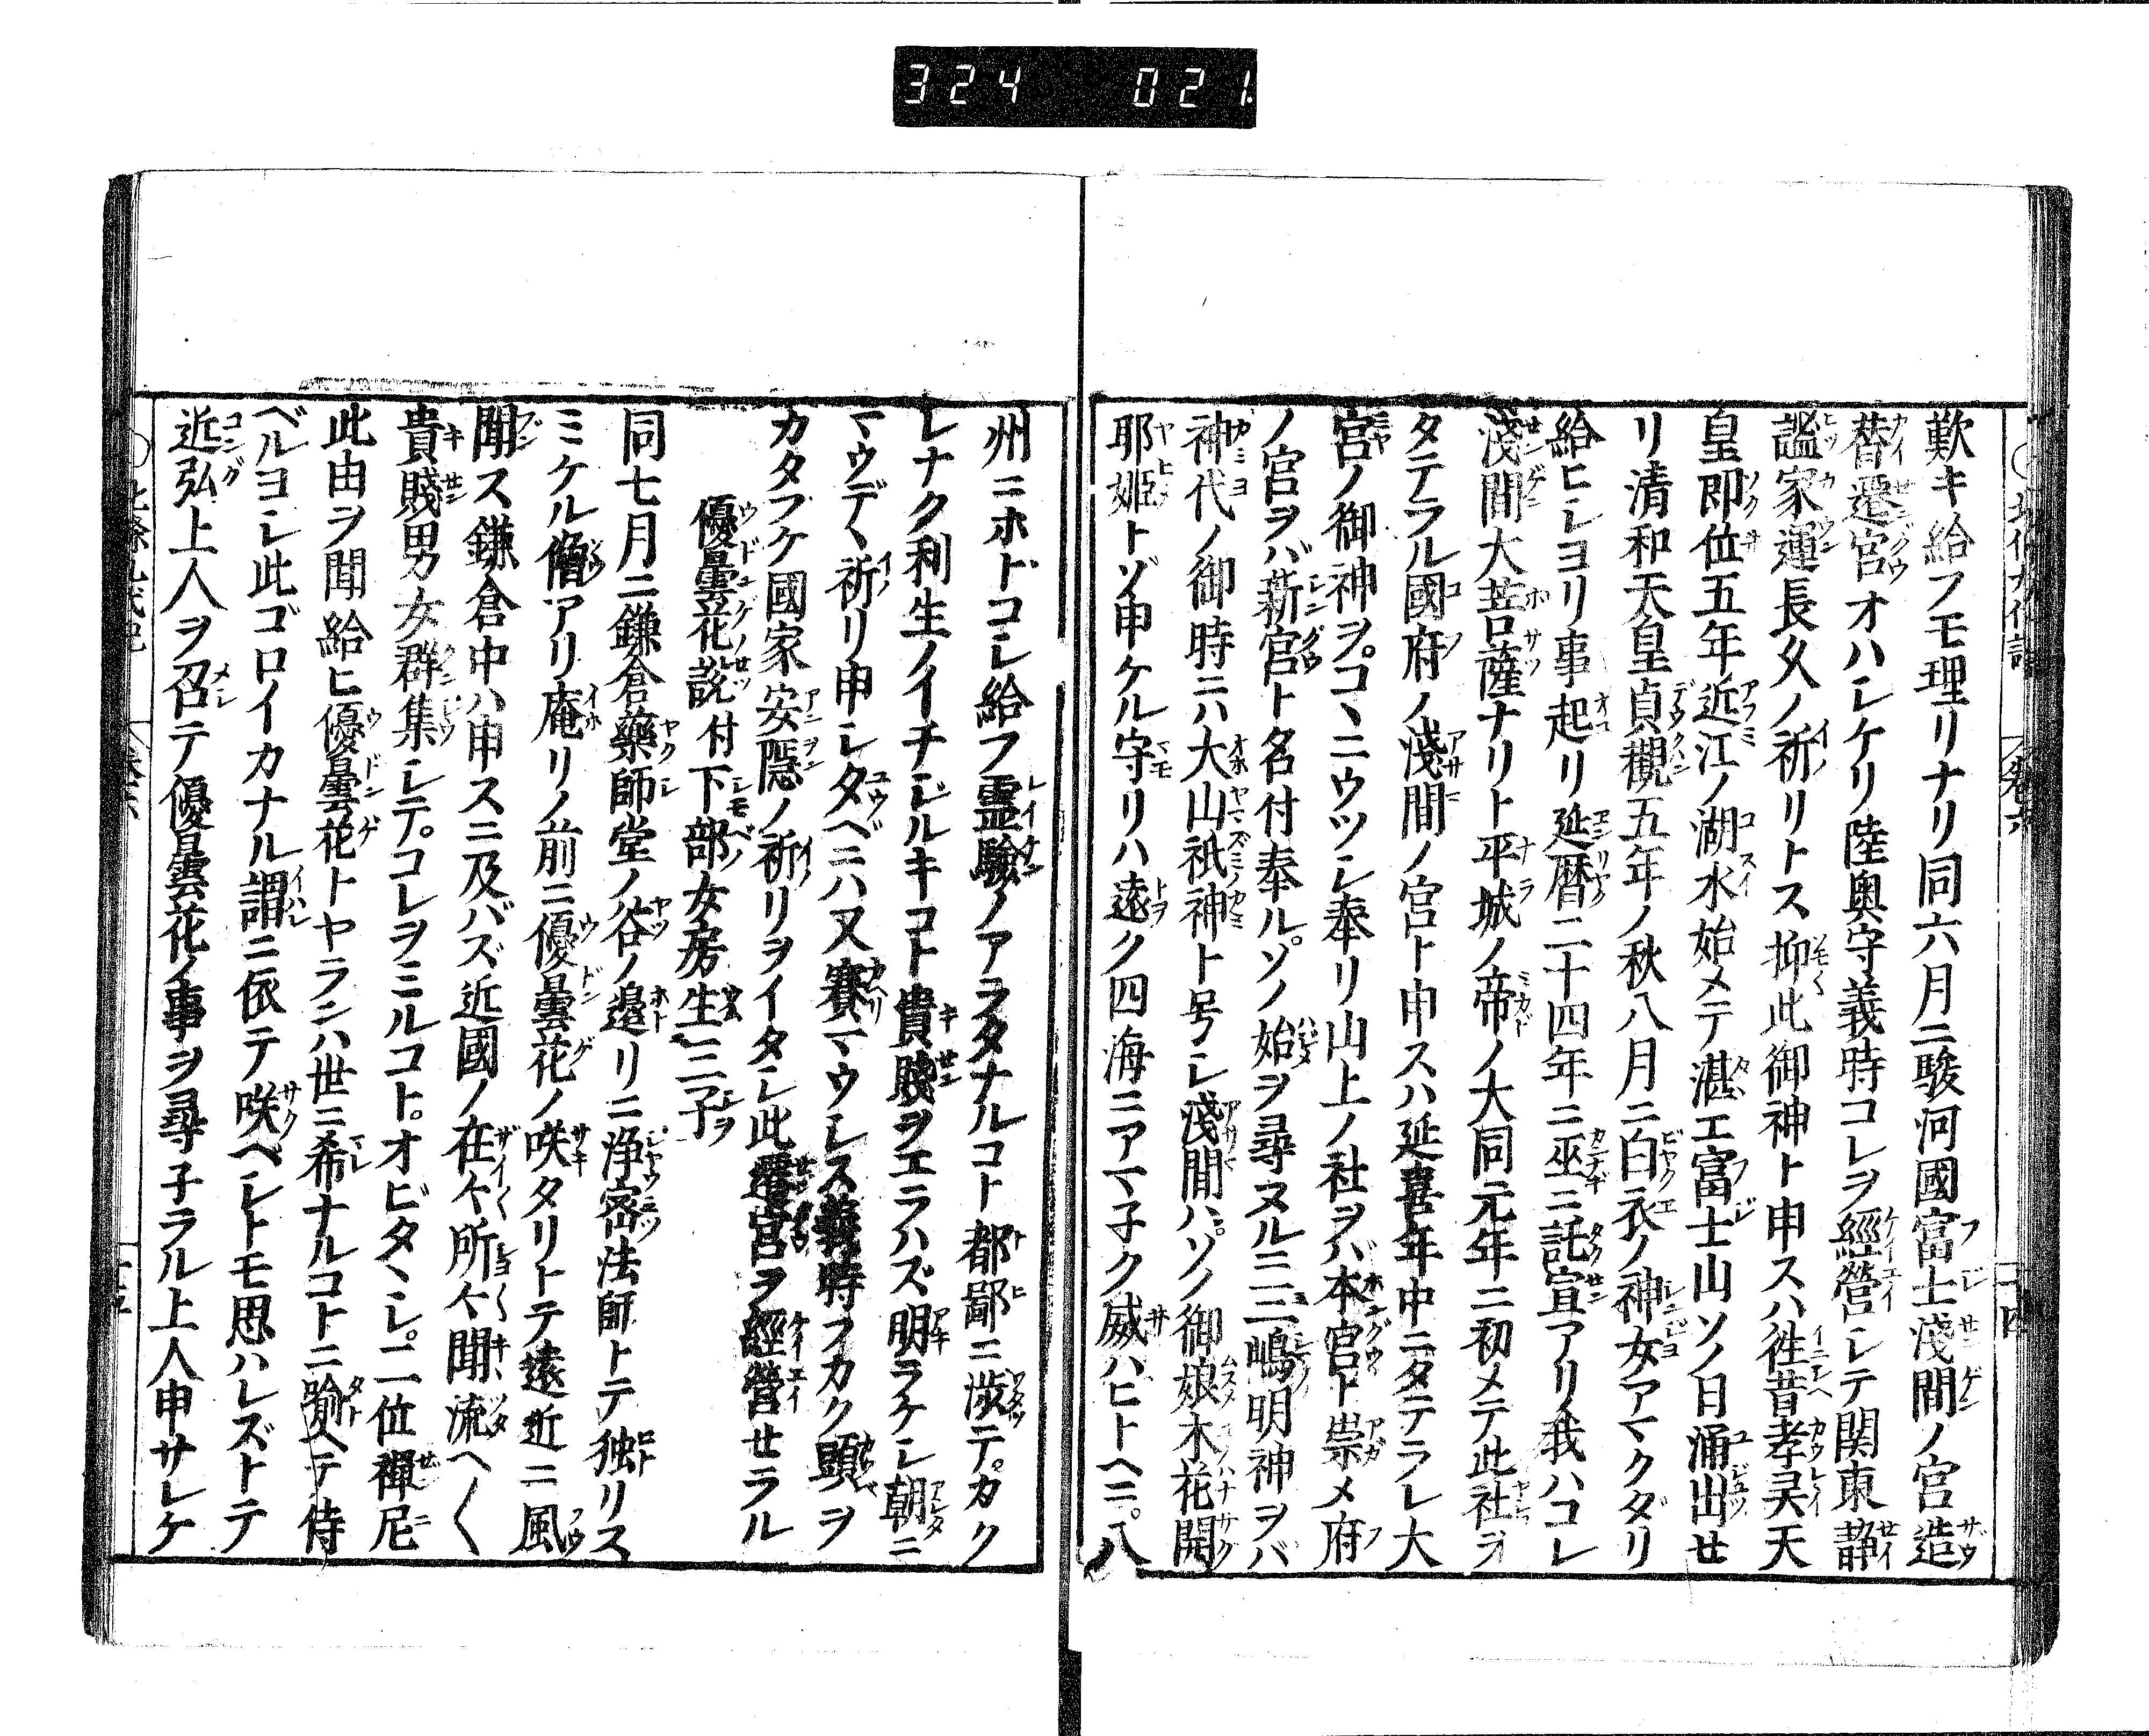 324 021
歎キ給フモ理リナリ同六月ニ駿河國富士淺間ノ宮造
替遷宮オハシケリ陸奥守義時コレヲ經營シテ関東静
謐家運長久ノ祈リトス抑此御神ト申スハ徃昔孝㚑天
皇即位五年近江ノ湖水始メテ湛エ富士山ソノ日涌出せ
リ清和天皇貞觀五年ノ秋八月ニ白衣ノ神女アマクダリ
給ヒシヨリ事起リ延暦二十四年ニ巫ニ託宣アリ我ハコレ
淺間大菩薩ナリト平城ノ帝ノ大同元年ニ初メテ此社ヲ
タテラル國府ノ淺間ノ宮ト申スハ延喜年中ニタテラレ大
宮ノ御神ヲコヽニウツシ奉リ山上ノ社ヲハ本宮ト崇メ府
ノ宮ヲバ新宮ト名付奉ルソノ始ヲ尋ヌルニ三嶋明神ヲバ
神代ノ御時ニハ大山祇神ト号シ淺間ハソノ御娘木花開
耶姫トゾ申ケル守リハ遠ク四海ニアマ子ク威ハヒトヘニ八
州ニホドコシ給フ霊驗ノアラタナルコト都鄙ニ渉テカク
レナク利生ノイチジルキコト貴賤ヲエラハズ明ラケシ朝ニ
マウデヽ祈リ申シタベニハ又賽マウシス義時フカク頭ヲ
カタフケ國家安隠ノ祈リヲイタシ此遷宮ヲ經營せラル
優曇花説付下部女房生三子
同七月ニ鎌倉藥師堂ノ谷ノ邉リニ浄密法師トテ独リス
ミケル僧アリ庵リノ前ニ優曇花ノ咲タリトテ遠近ニ風
聞ス鎌倉中ハ申スニ及バズ近國ノ在々所々聞流ヘ〱
貴賤男女群集シテコレヲミルコトオビタヽシ二位禪尼
此由ヲ聞給ヒ優曇花トヤランハ世ニ希ナルコトニ喩ヘテ侍
ベルヨシ此ゴロイカナル謂ニ依テ咲ベシトモ思ハレズトテ
近弘上人ヲ召テ優曇花ノ事ヲ尋子ラル上人申サレケ